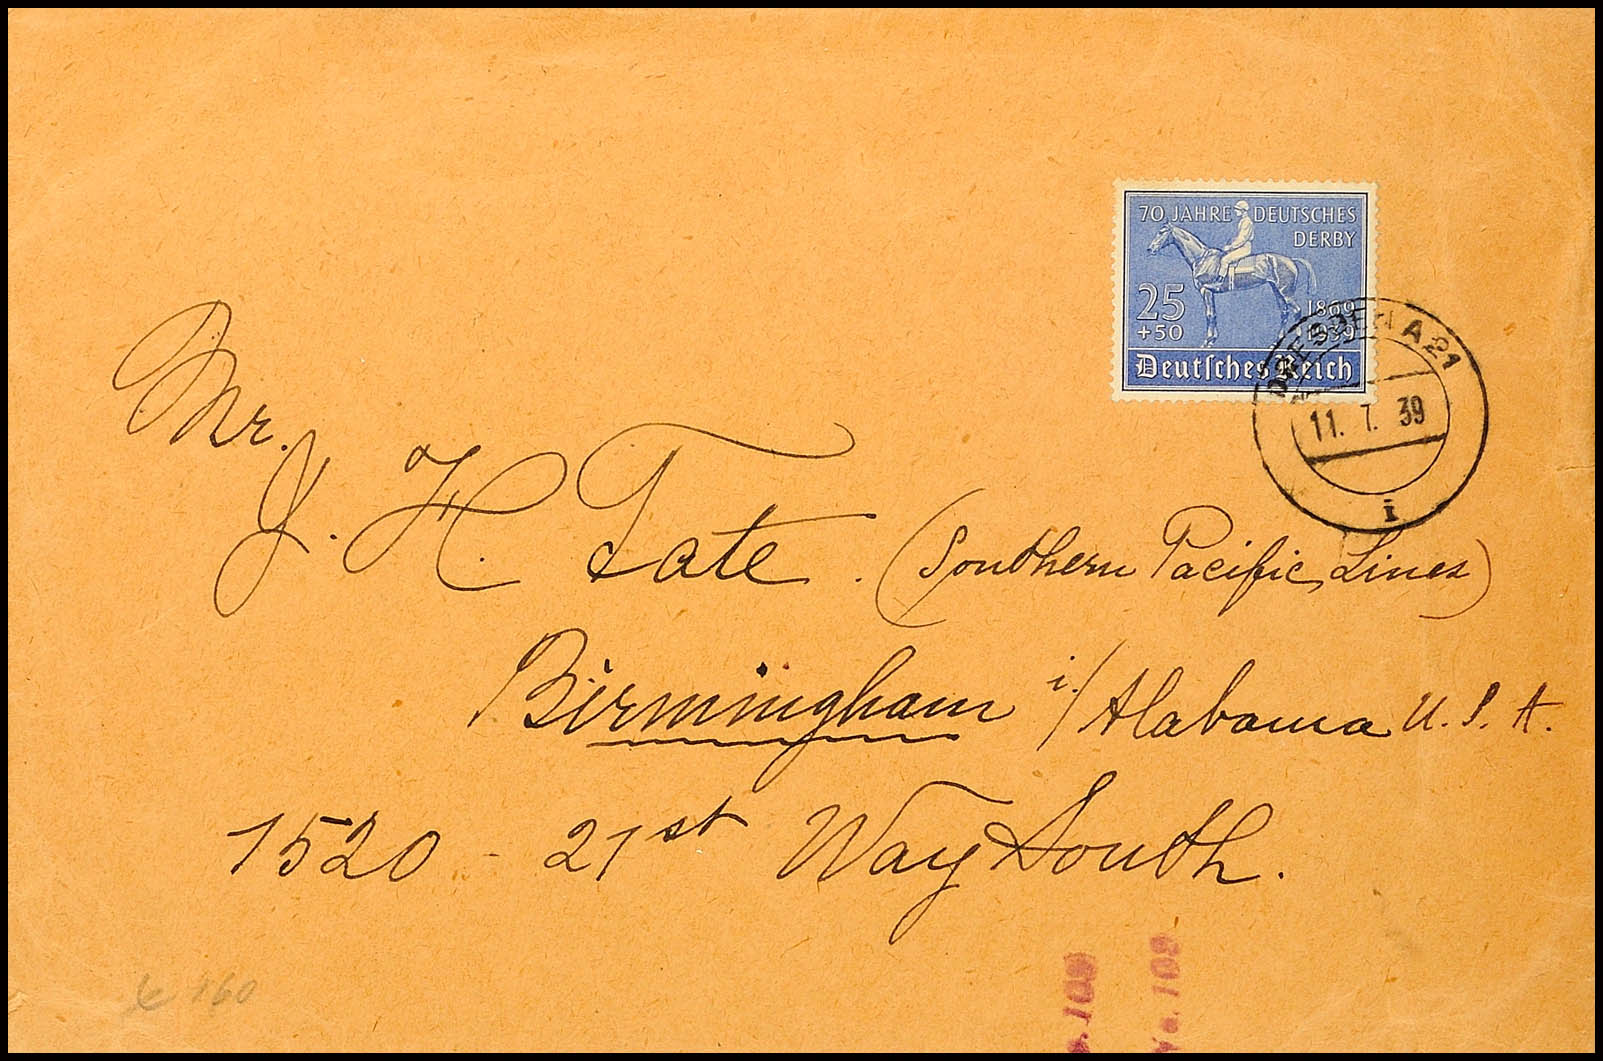 70 JAHRE DEUTSCHES
DERBY
25
+50
1869
1939
Deutsches Reich
DRESDEN A 21
11. 7. 39
i
Mr.
J. H. Tate. (Southern Pacific Lines)
Birmingham i./Alabama U. S. A.
1520 - 21st Way South.
160
No. 109